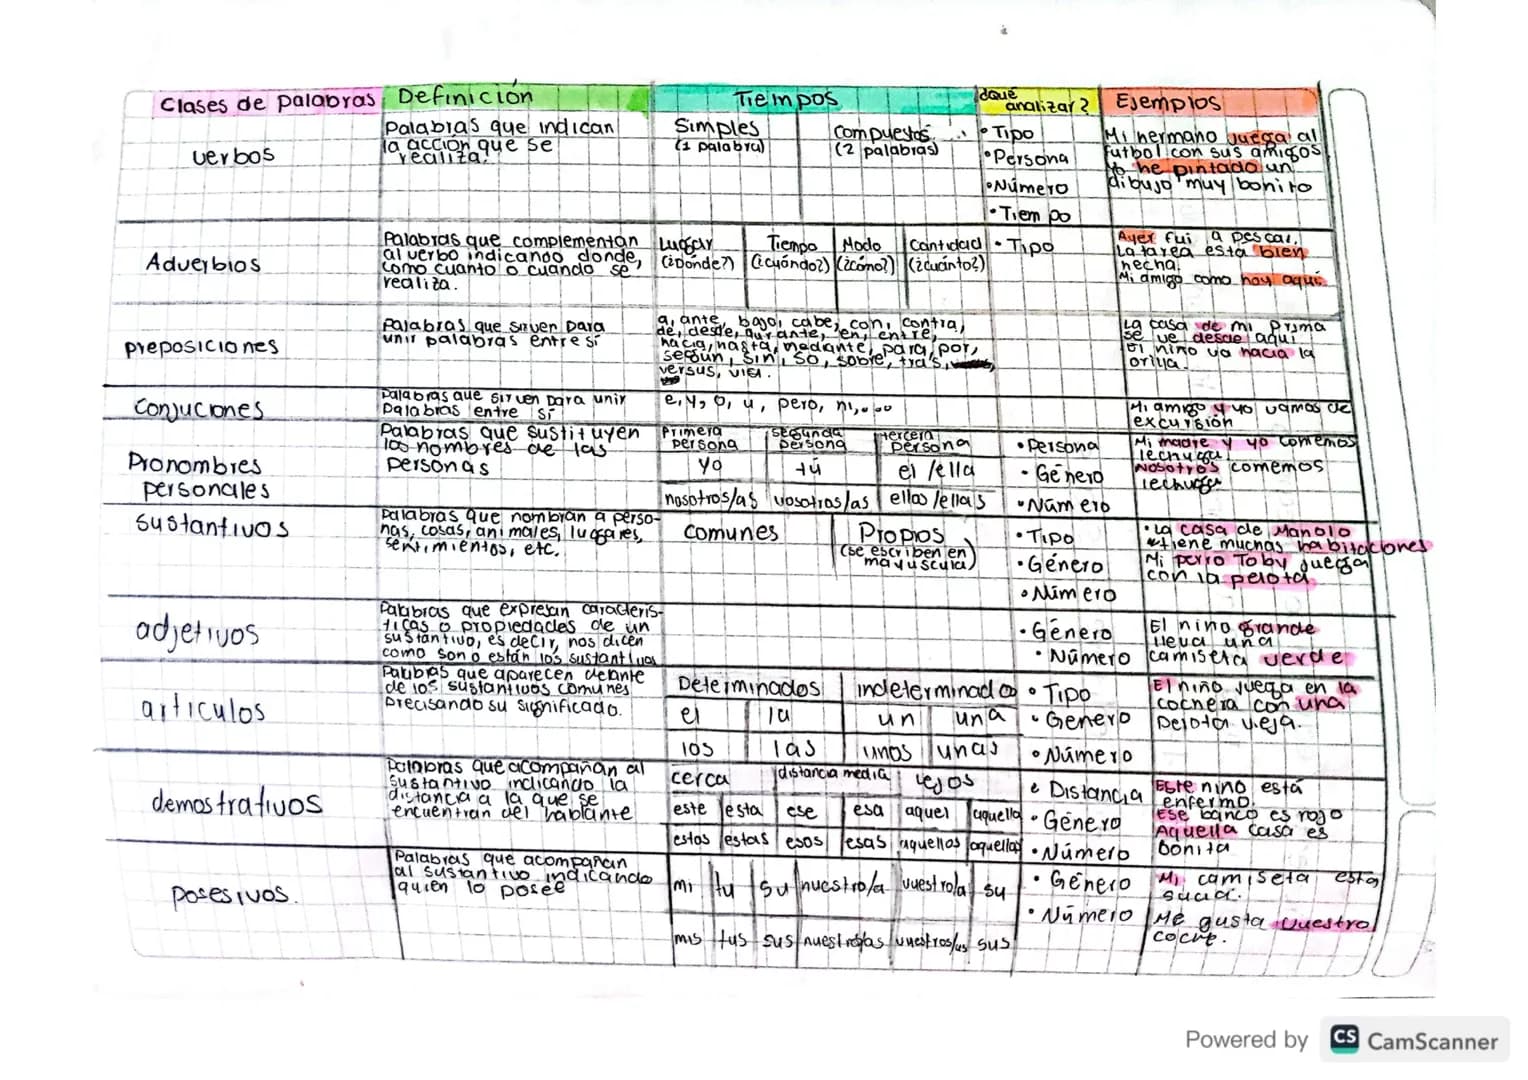 Clases de palabras Definición Tiempos ¿Qué analizar? Ejemplos
verbos
Palabras que indican
la acción que se
realiza.
Simples
(1 palabra)
compuestos
(2 palabras)
• Tipo
• Persona
• Número
• Tiempo
Mi hermano juega al
futbol con sus amigos
Yo he pintado un
dibujo muy bonito
Adverbios
Palabras que complementan
al verbo indicando donde,
como cuanto o cuando se
realiza.
Lugar Tiempo Modo Cantidad
(¿Dónde?) (¿cuándo?) (¿cómo?) (¿cuánto?)
• Tipo
Ayer fui a pescar.
La tarea está bien
hecha.
Mi amigo come hoy aquí.
preposiciones
Palabras que sirven para
unir palabras entre sí
a, ante, bajo, cabe, con, contra,
de, desde, durante, en, entre,
hacia, hasta, mediante, para, por,
según, sin, so, sobre, tras,
versus, vía.
La casa de mi prima
se ve desde aquí
El niño va hacia la
orilla.
Conjuciones
Palabras que sirven para unir
palabras entre sí
e, y, o, u, pero, ni,...
Mi amigo y yo vamos de
excursión
Pronombres
personales
Palabras que sustituyen
los nombres de las
personas
Primera persona segunda persona tercera persona
yo tú el /ella
nosotros/as vosotros/as ellos /ellas
• Persona
• Género
• Número
Mi madre y yo comemos
lechuga
Nosotros comemos
lechuga
sustantivos
Palabras que nombran a perso-
nas, cosas, animales, lugares,
sentimientos, etc.
comunes
Propios
(se escriben en
mayúscula)
• Tipo
• Género
• Número
• La casa de Manolo
tiene muchas habitaciones
Mi perro Toby juega
con la pelota
adjetivos
Palabras que expresan caracterís-
ticas o propiedades de un
sustantivo, es decir, nos dicen
como son o están los sustantivos
• Género
• Número
El niño grande
lleva una
camiseta verde
articulos
Palabras que aparecen delante
de los sustantivos comunes
precisando su significado.
Determinados indeterminado
el la un una
los las unos unas
• Tipo
• Genero
• Número
El niño juega en la
cochera con una
pelota vieja.
demostrativos
Palabras que acompañan al
sustantivo indicando la
distancia a la que se
encuentran del hablante
cerca distancia media Lejos
este esta ese esa aquel aquella
estos estas esos esas aquellos aquellas
• Distancia
• Género
• Número
Este niño está
enfermo.
Ese banco es rojo
Aquella casa es
bonita
posesivos.
Palabras que acompañan
al sustantivo indicando
quien lo posee
mi tu su nuestro/a vuestro/a su
mis tus sus nuestros/as vuestros/as sus
• Género
• Número
Mi camiseta está
sucia.
Me gusta vuestro
coche.
Powered by CS CamScanner